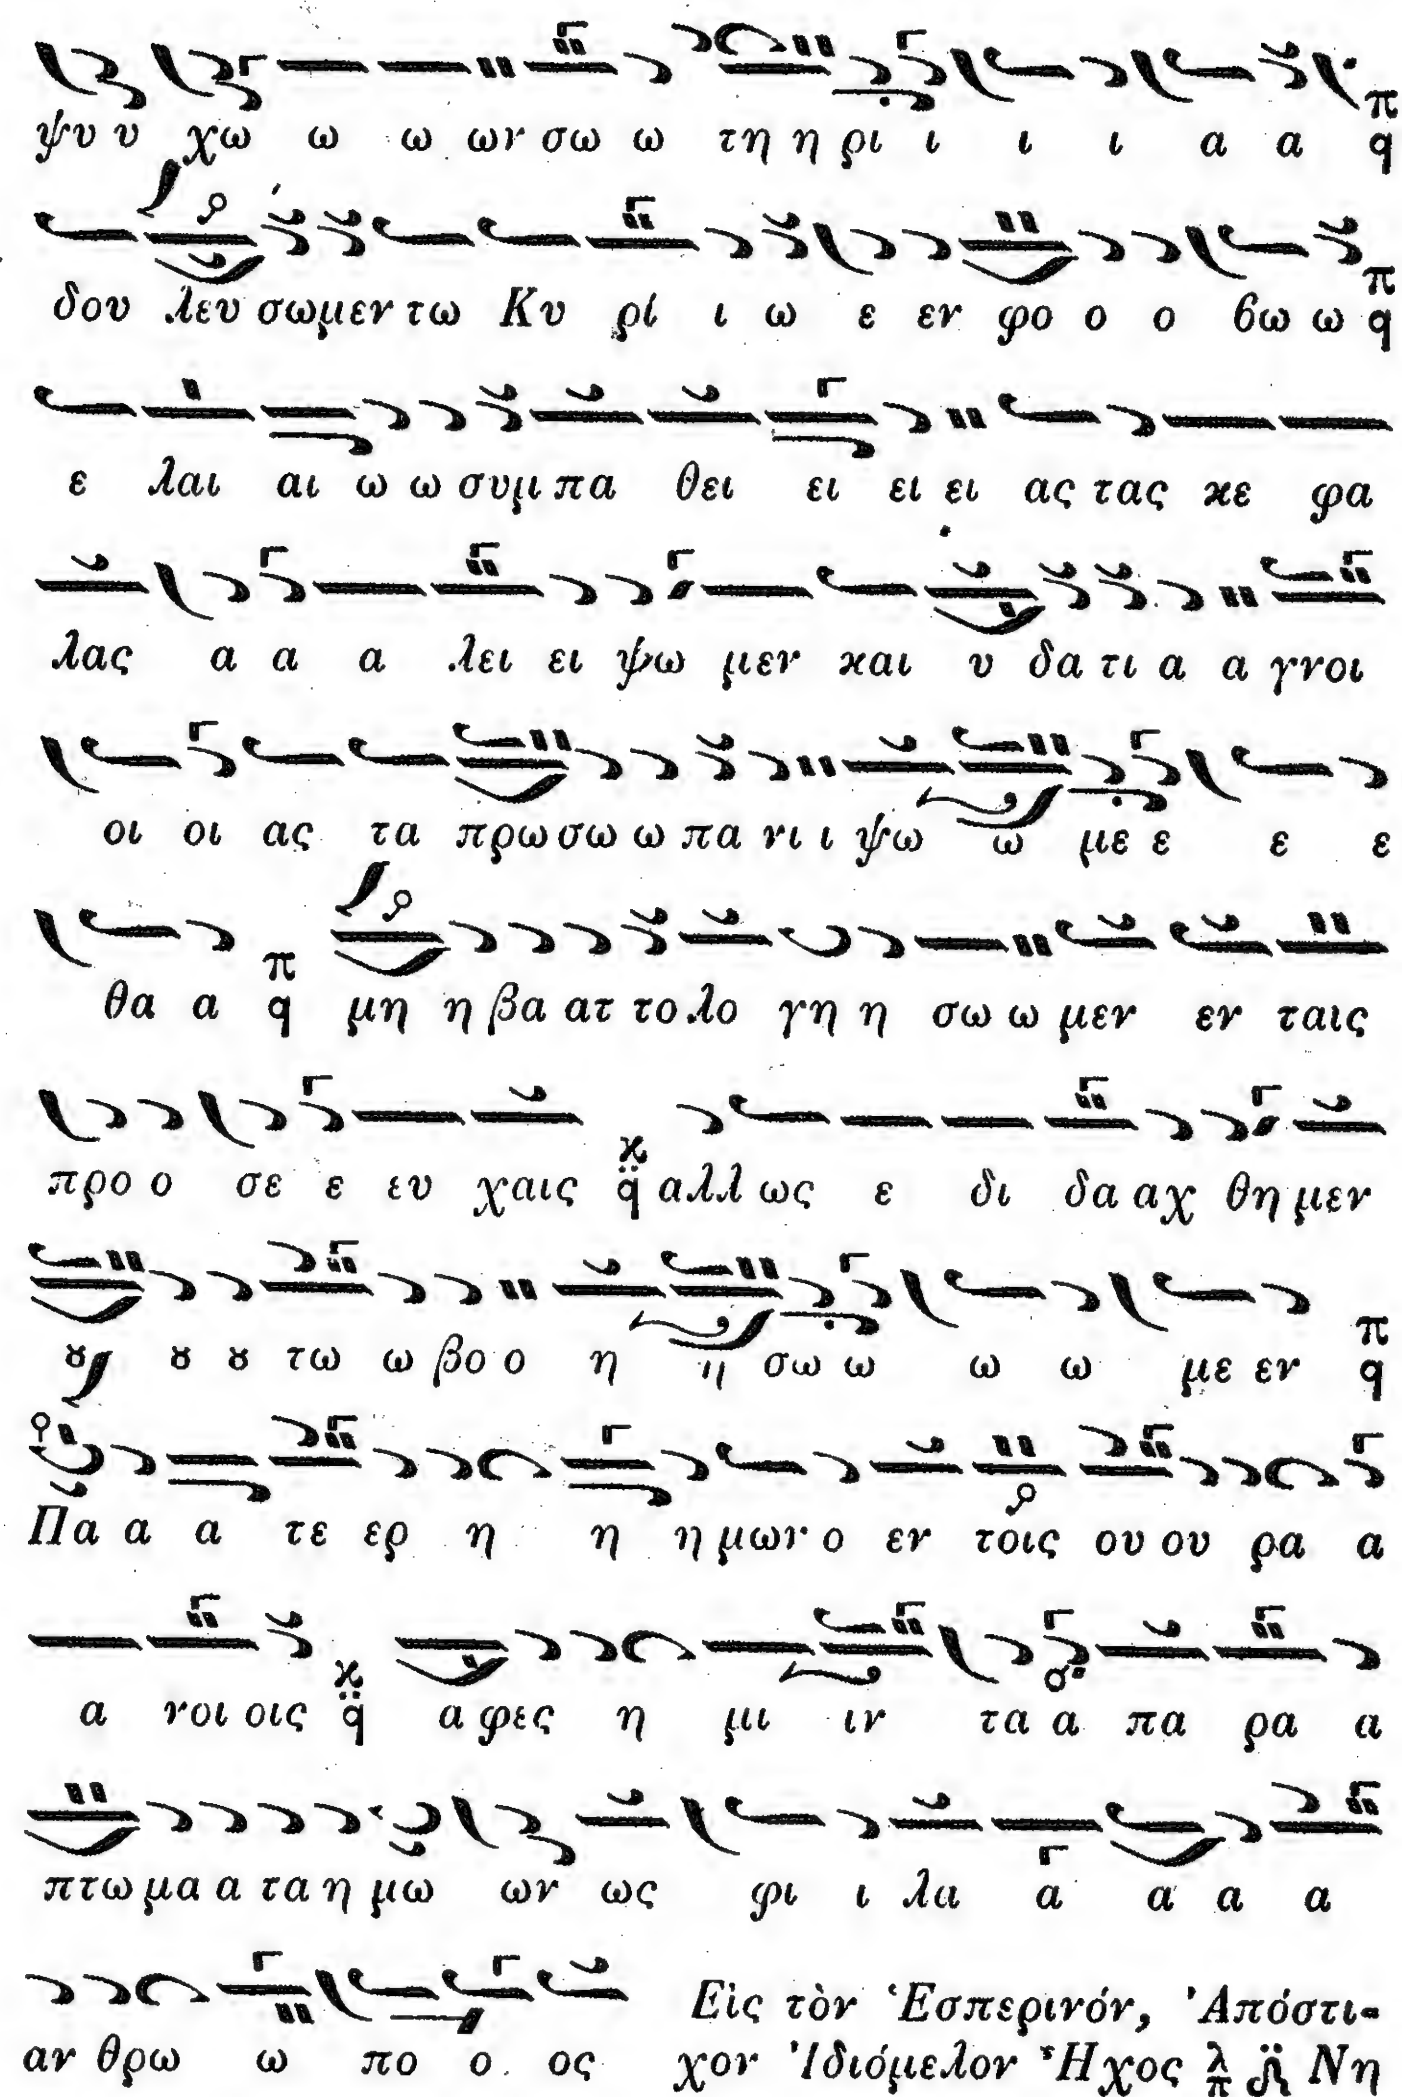 ψυ υ χω ω ω ων σω ω τη η ρι ι ι ι α α π q
δου λευ σωμεν τω Κυ ρί ι ω ε εν φο ο ο βω ω π q
ε λαι αι ω ω συμ πα θει ει ει ει ας τας κε φα
λας α α α λει ει ψω μεν και υ δα τι α α γνοι
οι οι ας τα πρω σω ω πα νι ι ψω ω με ε ε ε
θα α π q μη η βα ατ το λο γη η σω ω μεν εν ταις
προ ο σε ε ευ χαις κ q̈ αλλ ως ε δι δα αχ θη μεν
ȣ ȣ ȣ τω ω βο ο η η σω ω ω ω με εν π q
Πα α α τε ερ η η η μων ο εν τοις ου ου ρα α
α νοι οις κ q̈ α φες η μι ιν τα α πα ρα α
πτω μα α τα η μω ων ως φι ι λα α α α α
αν θρω ω πο ο ος
Εἰς τὸν Ἑσπερινόν, Ἀπόστι-
χον Ἰδιόμελον Ἦχος λ π Νη